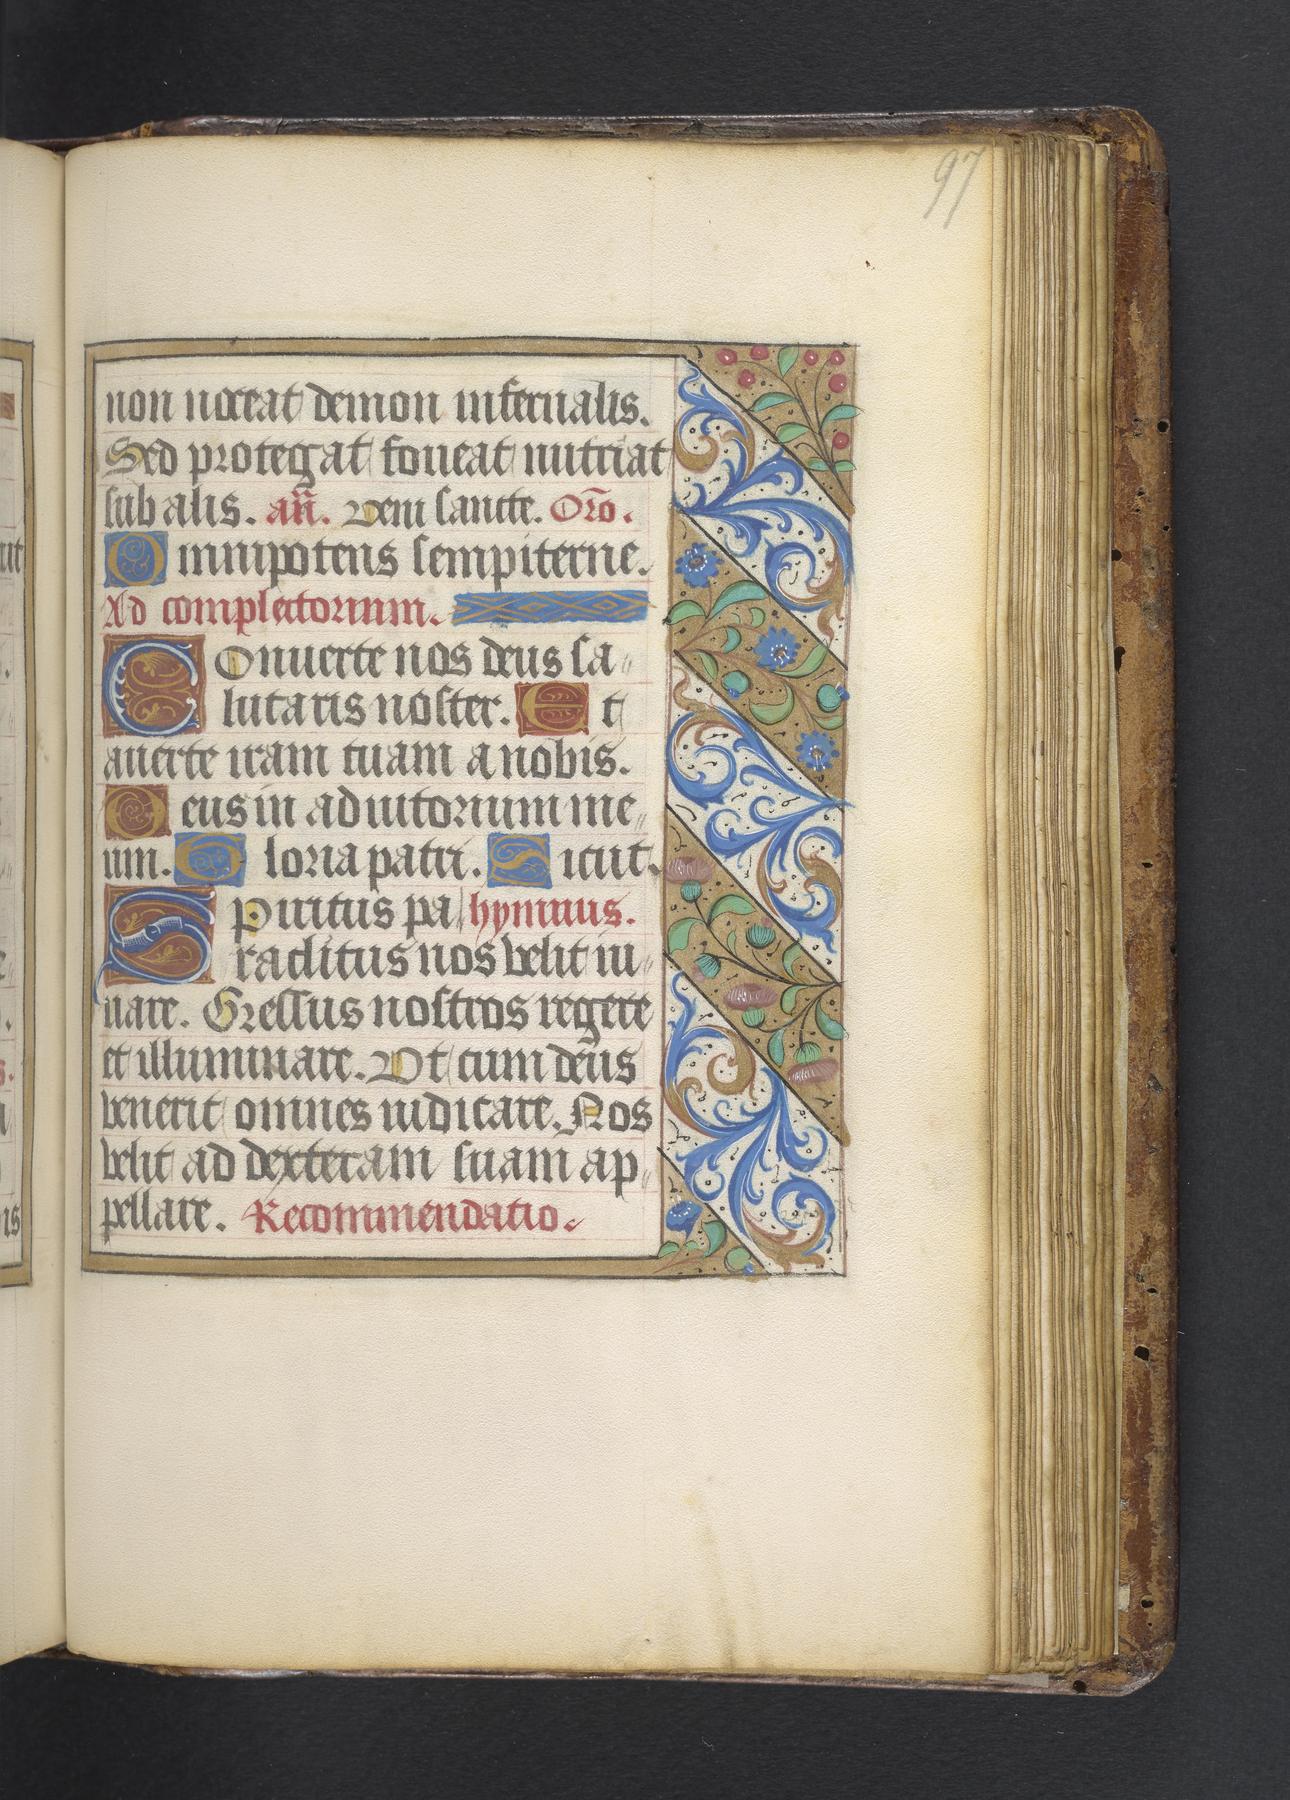 97
non noceat demon infernalis.
Sed protegat foueat nutriat
sub alis. an̄. Veni sancte. Oro̅.
Omnipotens sempiterne.
Ad completorium.
Conuerte nos deus sa„
lutaris noster. Et
auerte iram tuam a nobis.
Deus in adiutorium me„
um. Gloria patri. Sicut.
Spiritus pa hymnus.
raclitus nos velit iu„
uare. Gressus nostros regere
et illuminare. Vt cum deus
venerit omnes iudicare. Nos
velit ad dexteram suam ap„
pellare. Recommendatio.